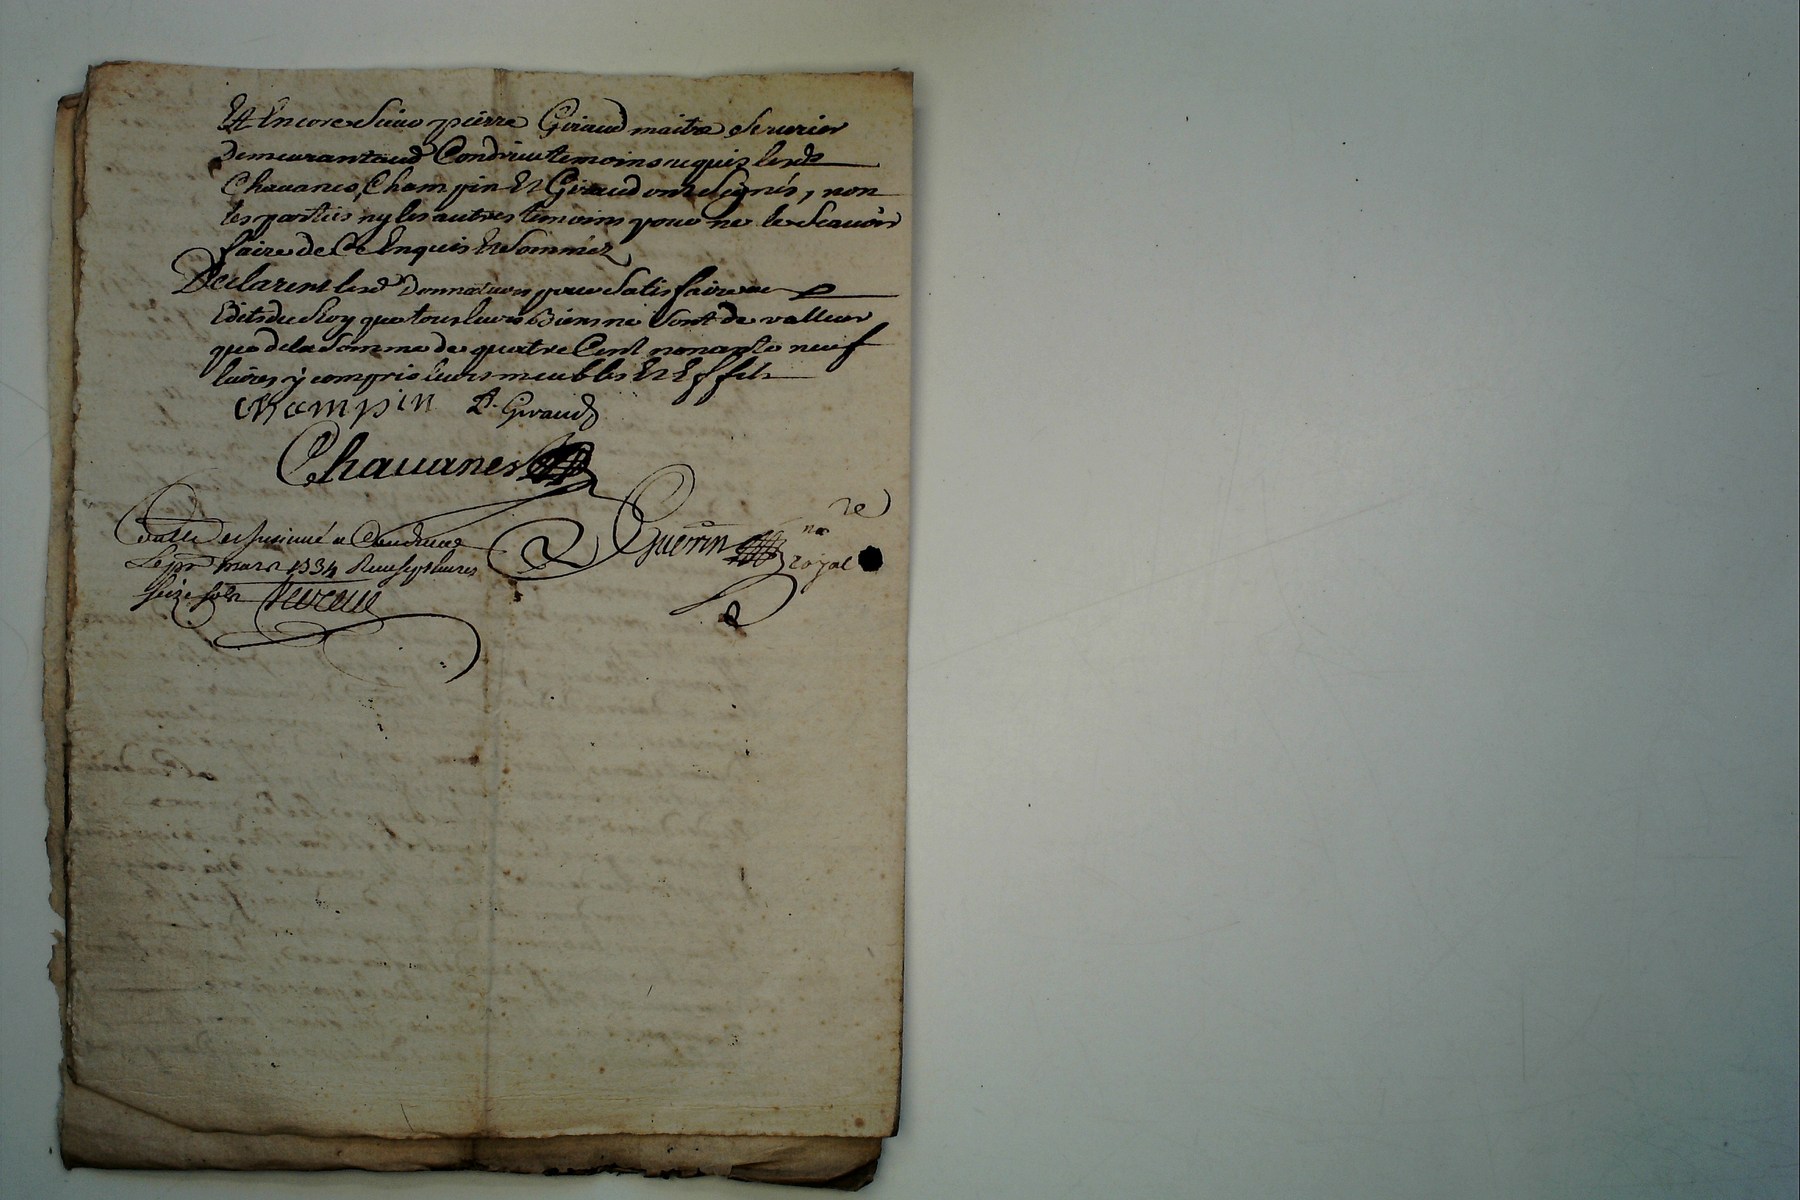 Et Encore Sieur pierre Giraud maitre Serurier
Demeurant aud Condrieu temoins requis lesds
Chauanes, Champin Et Giraud ont Signés, non
les parties ny les autres temoins pour ne le Scauoir
faire de Ce Enquis Et Sommèz
Declarent lesd Donnateurs pour Satisfaire au
Edits du Roy que tous leurs Biens ne Sont de valleur
que de la Somme de quatre Cent nonante neuf
liures y compris leurs meubles Et Effets
Champin P. Giraud
Chauanes
Guerrin nore royal
Controllé et Insinué a Condrieu
Le pr mars 1734 Receu sept liures
Seize sols